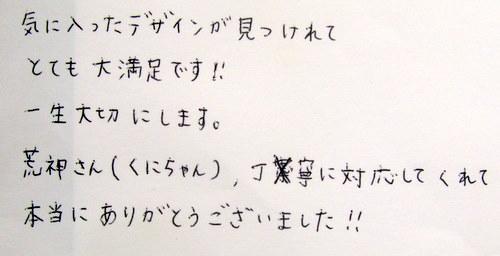 気に入ったデザインが見つけれて
とても大満足です!!
一生大切にします。
荒神さん(くにちゃん),丁寧に対応してくれて
本当にありがとうございました!!